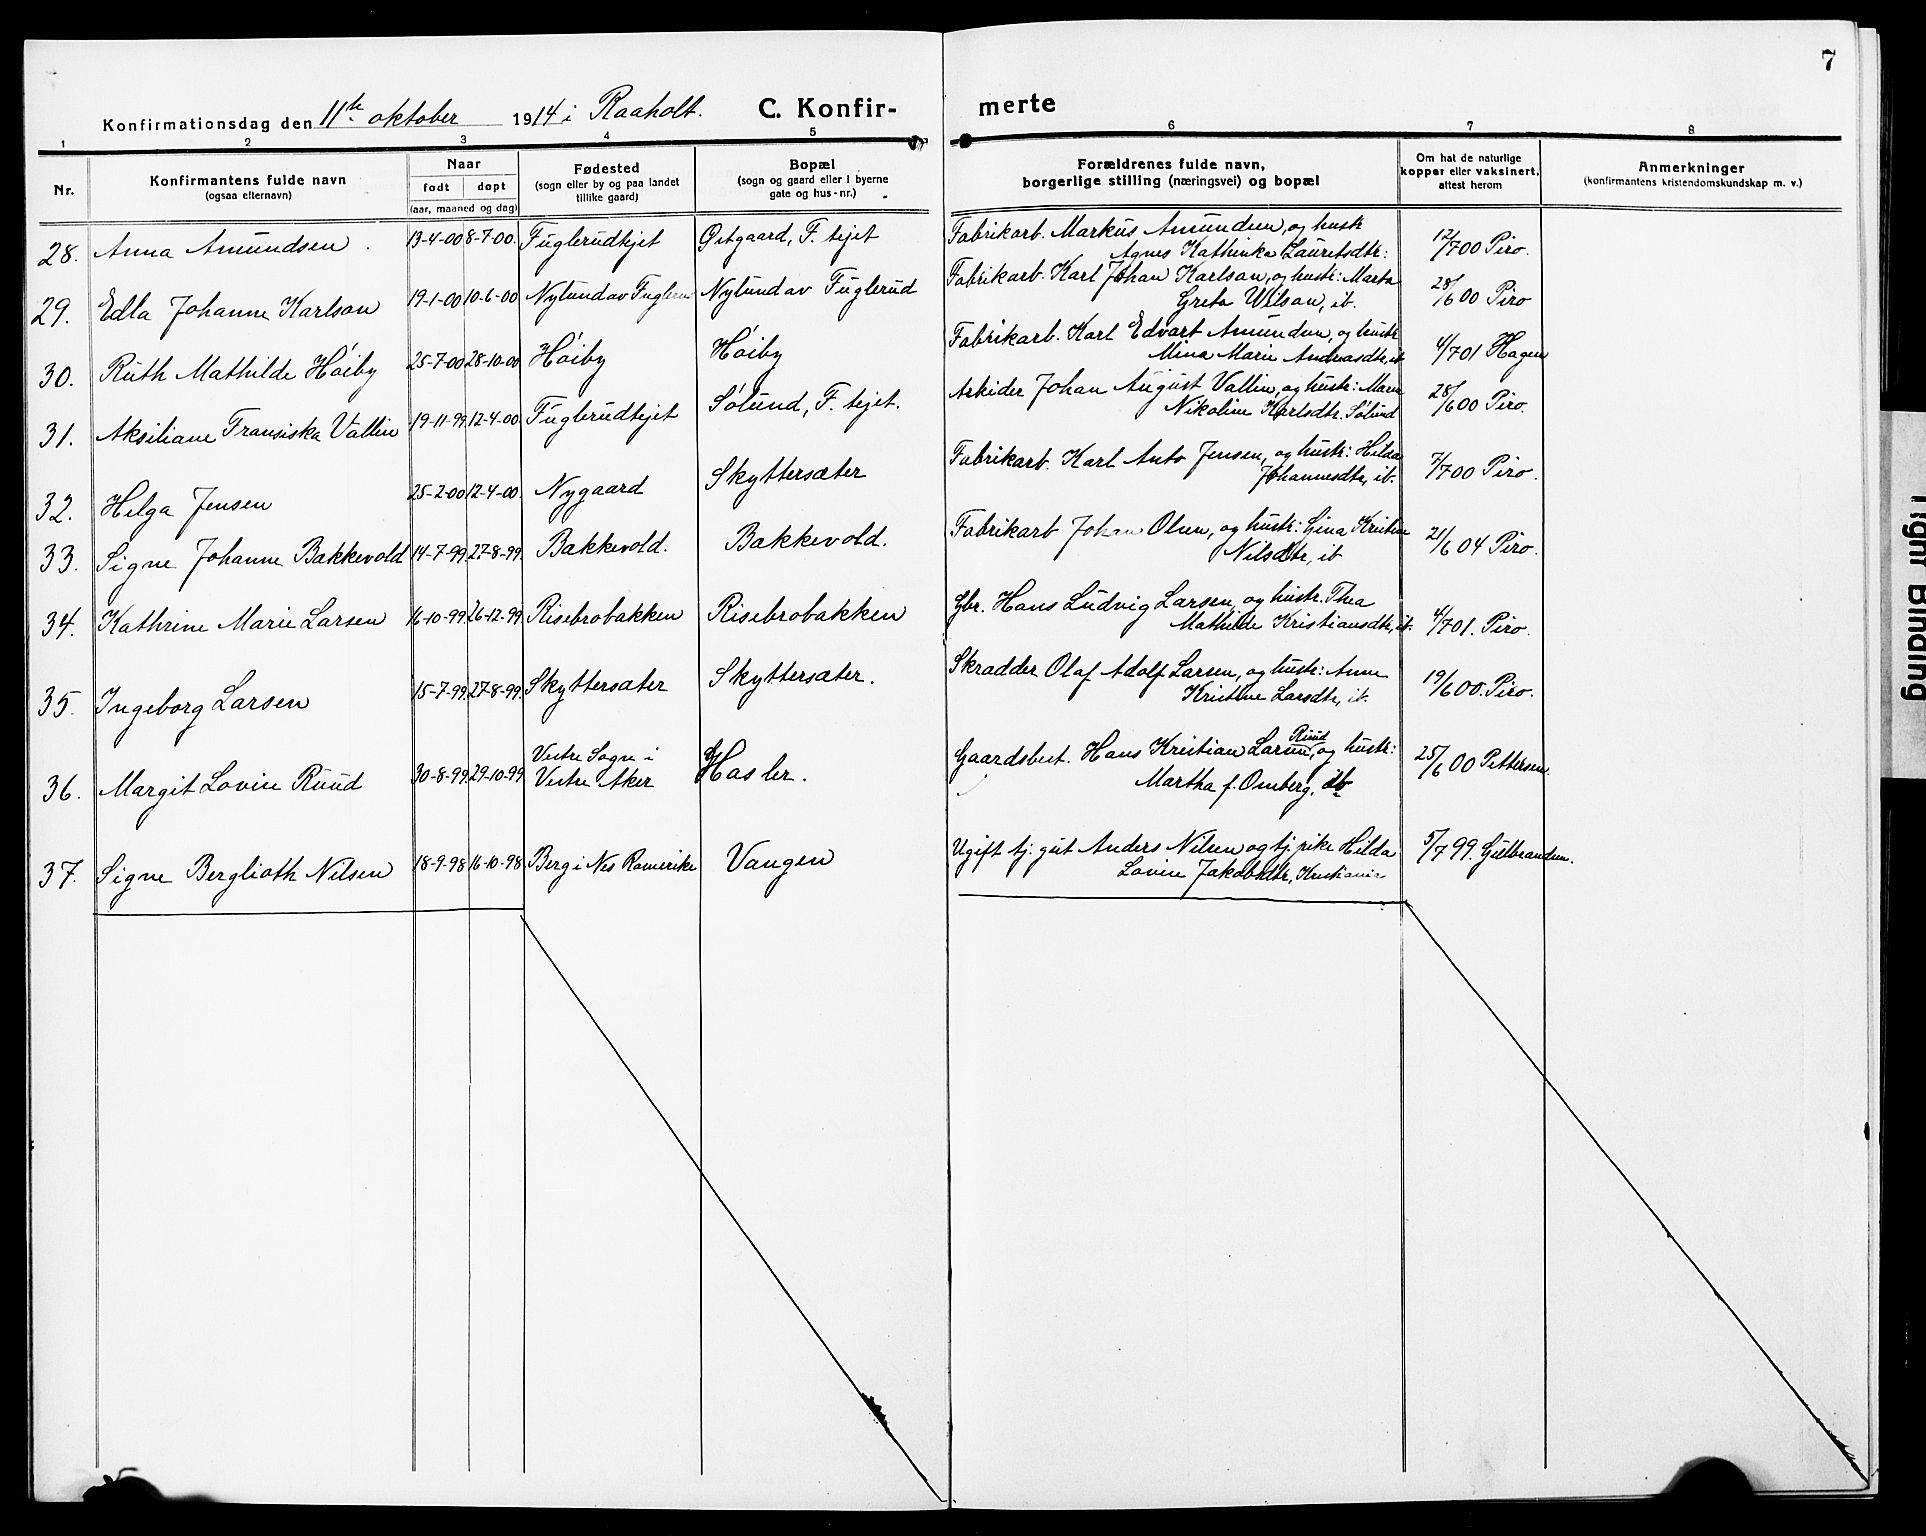 7
Konfirmationsdag den 11te oktober 1914 i Raaholt. C. Konfir- merte
1 2 3 4 5 6 7 8
Nr.
Konfirmantens fulde navn
(ogsaa efternavn)
Naar
født døpt
(aar, maaned og dag)
Fødested
(sogn eller by og paa landet
tillike gaard)
Bopæl
(sogn og gaard eller i byerne
gate og hus-nr.)
Forældrenes fulde navn,
borgerlige stilling (næringsvei) og bopæl
Om hat de naturlige
kopper eller vaksinert,
attest herom
Anmerkninger
(konfirmantens kristendomskundskap m. v.)
28. Anna Amundsen. 13-4-00 8-7-00. Fuglerudejet Østgaard, F. ejet Fabrikarb. Markus Amundsen, og hustr
Agnes Kathinka Lauretsdtr: 12/700 Piro.
29. Edla Johanne Karlson 19-1-00 10-6-00 Nylund av Fuglerud Nylund av Fuglerud Fabrikarb. Karl Johan Karlson, og hustr: Marta
Greta Wilson, ib. 28/600 Piro
30. Ruth Mathilde Höiby 25-7-00 28-10-00 Höiby Höiby Fabrikarb. Karl Edvart Amundsen, og hustr
Mina Marie Andreasdtr, ib 4/701 Hagen
31. Aksiliane Fransiska Vallin 19-11-99 12-4-00. Fuglerudejet Sólund, F. ejet. Arbeider Johan August Vallin, og hustr: Maren
Nikoline Karlsdtr. Sólund 28/600 Piro.
32. Helga Jensen 25-2-00 12-4-00. Nygaard Skyttersæter Fabrikarb. Karl Anto Jensen, og hustr: Hilda
Johannesdtr, ib. 7/700 Piro.
33. Signe Johanne Bakkevold 14-7-99. 27-8-99. Bakkevold. Bakkevold. Fabrikarb Johan Olsen, og hustr: Gina Kristine
Nilsdtr, ib 21/604 Piro.
34. Kathrine Marie Larsen 16-10-99. 26-12-99 Risebrobakken Risebrobakken Gbr. Hans Ludvig Larsen, og hustr. Thea
Mathilde Kristiansdtr, ib. 4/701. Piro.
35. Ingeborg Larsen 15-7-99. 27-8-99. Skyttersæter Skyttersæter. Skradder Olaf Adolf Larsen, og hustr: Anne
Kristine Larsdtr, ib. 19/600. Piro.
36. Margit Lovise Ruud 30-8-99. 29-10-99 Vestre Sogn i
Vestre Aker Hasler. Gaardsbest. Hans Kristian Larsen Ruud, og hustr:
Martha f. Omberg, ib 25/600 Pettersen.
37. Signe Berglioth Nilsen 18-9-98 16-10-98 Berg i Nes Romerike Vangen Ugift tj: gut Anders Nilsen og tj. pike Hilda
Lovise Jakobsdtr, Kristiania 5/799. Gulbrandsen.
Tight Binding